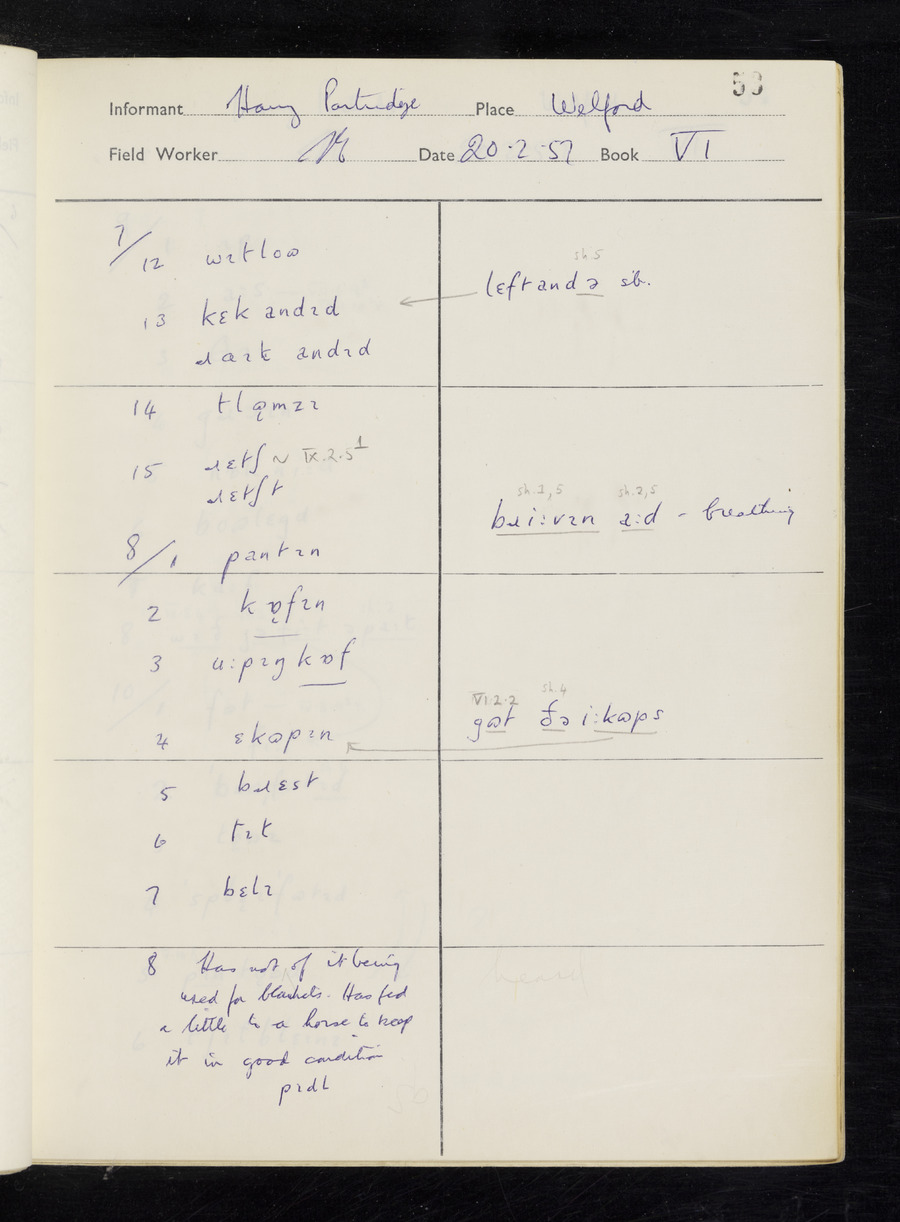 53
Informant Harry Partridge Place Welford
Field Worker Date 20·2·57 Book VI
7/12 wɪtloʊ
sh.5
lɛftandə sb.
13 kɛk andɪd
ɹaɪt andɪd
14 tlɒ̜mzɪ
15 ɹɛtʃ ~ IX.2.5¹
ɹɛtʃt
sh.1,5 sh.2,5
bɹi:vɪn a:d - breathing
8/1 pantɪn
2 kɒ̜fɪn
3 u:pɪŋ kɒf
VI.2.2 sh.4
gɒt ðə i:kɒps
4 ɛkɒpɪn
5 bɹɛst
6 tɪt
7 bɛlɪ
8 Has not of it being
heard
used for blankets. Has fed
a little to a horse to keep
it in good condition